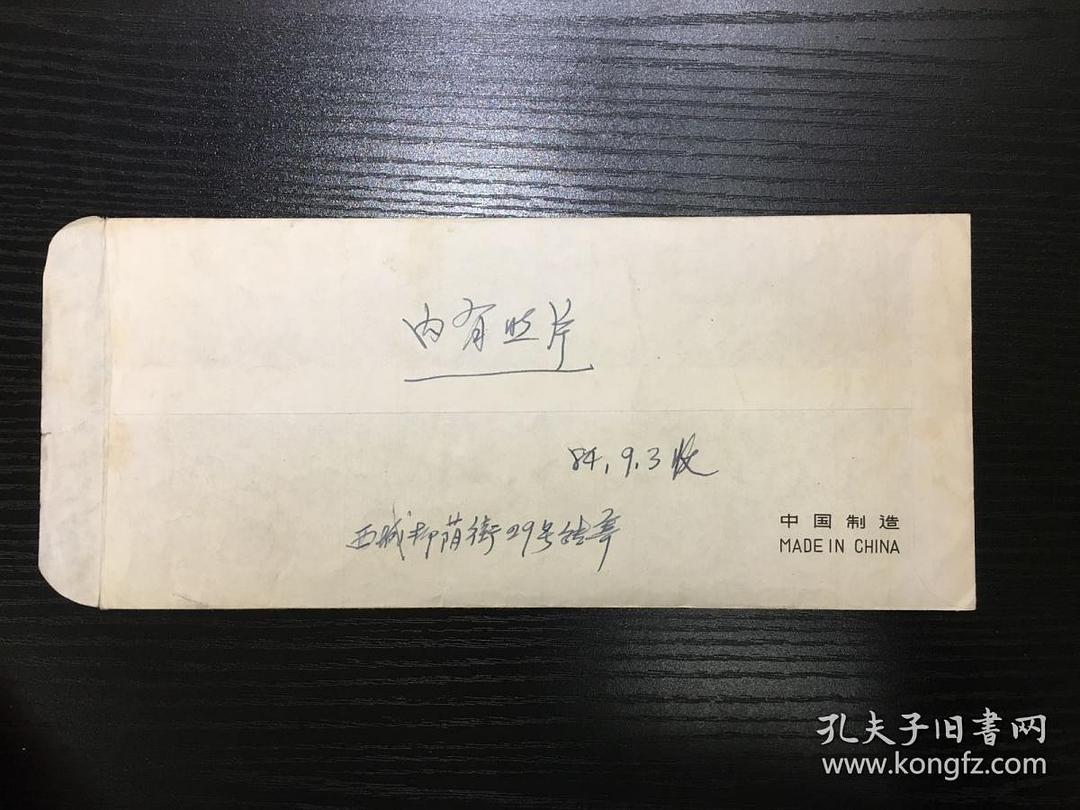 内有照片
84.9.3收
西城柳荫街29号
中国制造
MADE IN CHINA
孔夫子旧书网
www.kongfz.com